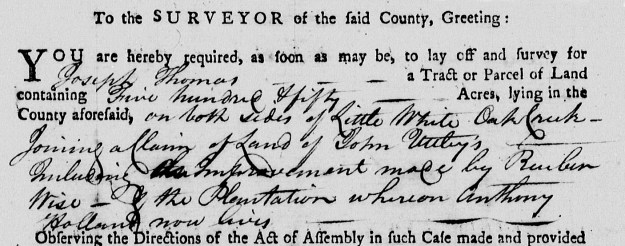 To the SURVEYOR of the said County, Greeting:
YOU are hereby required, as soon as may be, to lay off and survey for
Joseph Thomas a Tract or Parcel of Land
containing Five hundred & fifty Acres, lying in the
County aforesaid, on both sides of Little White Oak Creek
Joining a Claim of Land of John Uttleys
Including improvement made by Reuben
Wise & the Plantation whereon Anthony
Holland now lives
Observing the Directions of the Act of Assembly in such Case made and provided